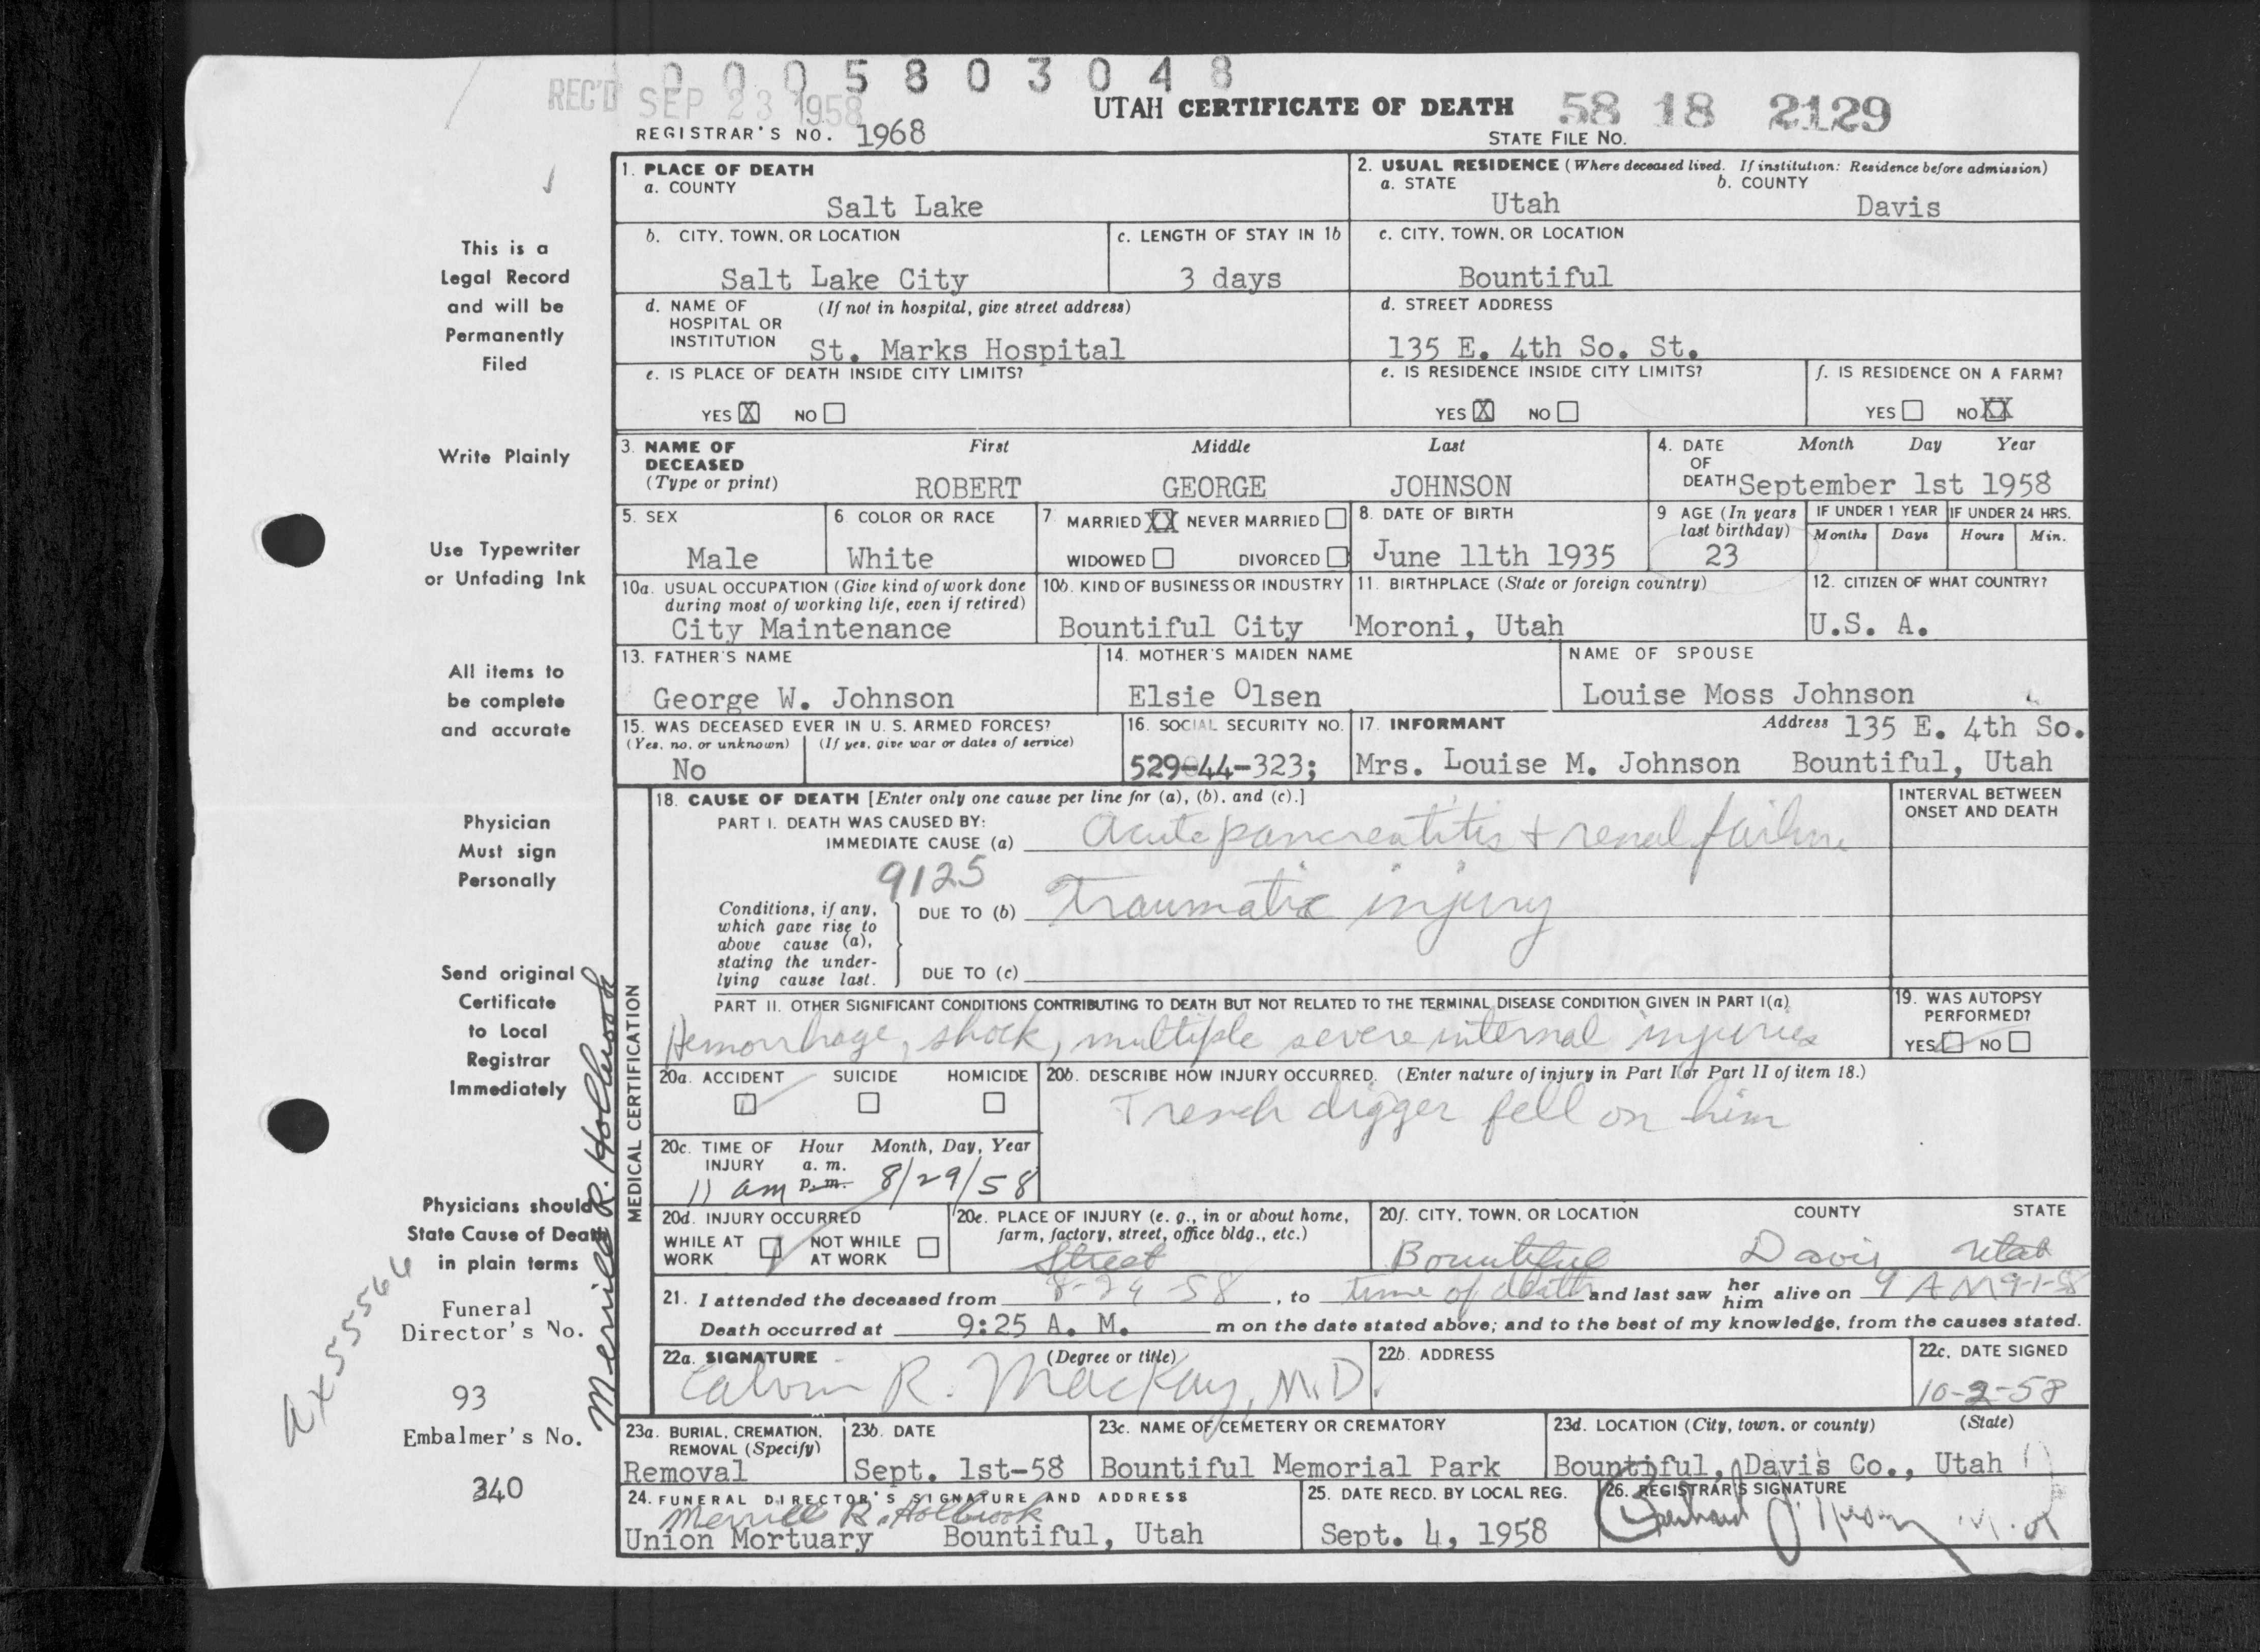 0 0 0 5 8 0 3 0 4 8
REC'D SEP 23 1958
UTAH CERTIFICATE OF DEATH 58 18 2129
REGISTRAR'S NO. 1968 STATE FILE NO.
1. PLACE OF DEATH
a. COUNTY
Salt Lake
2. USUAL RESIDENCE (Where deceased lived. If institution: Residence before admission)
a. STATE b. COUNTY
Utah Davis
b. CITY, TOWN, OR LOCATION
Salt Lake City
c. LENGTH OF STAY IN 1b
3 days
c. CITY, TOWN, OR LOCATION
Bountiful
d. NAME OF (If not in hospital, give street address)
HOSPITAL OR
INSTITUTION St. Marks Hospital
d. STREET ADDRESS
135 E. 4th So. St.
e. IS PLACE OF DEATH INSIDE CITY LIMITS?
YES X NO
e. IS RESIDENCE INSIDE CITY LIMITS?
YES X NO
f. IS RESIDENCE ON A FARM?
YES NO XX
3. NAME OF First Middle Last
DECEASED
(Type or print) ROBERT GEORGE JOHNSON
4. DATE Month Day Year
OF
DEATH September 1st 1958
5. SEX
Male
6. COLOR OR RACE
White
7. MARRIED XX NEVER MARRIED
WIDOWED DIVORCED
8. DATE OF BIRTH
June 11th 1935
9 AGE (In years
last birthday)
23
IF UNDER 1 YEAR IF UNDER 24 HRS.
Months Days Hours Min.
10a. USUAL OCCUPATION (Give kind of work done
during most of working life, even if retired)
City Maintenance
10b. KIND OF BUSINESS OR INDUSTRY
Bountiful City
11. BIRTHPLACE (State or foreign country)
Moroni, Utah
12. CITIZEN OF WHAT COUNTRY?
U.S. A.
13. FATHER'S NAME
George W. Johnson
14. MOTHER'S MAIDEN NAME
Elsie Olsen
NAME OF SPOUSE
Louise Moss Johnson
15. WAS DECEASED EVER IN U. S. ARMED FORCES?
(Yes, no, or unknown) (If yes, give war or dates of service)
No
16. SOCIAL SECURITY NO.
529-44-323;
17. INFORMANT Address 135 E. 4th So.
Mrs. Louise M. Johnson Bountiful, Utah
MEDICAL CERTIFICATION
18. CAUSE OF DEATH [Enter only one cause per line for (a), (b), and (c).]
PART I. DEATH WAS CAUSED BY:
IMMEDIATE CAUSE (a) Acute pancreatitis + renal failure
9125
Conditions, if any,
which gave rise to
above cause (a),
stating the under-
lying cause last.
DUE TO (b) Traumatic injury
DUE TO (c)
INTERVAL BETWEEN
ONSET AND DEATH
PART II. OTHER SIGNIFICANT CONDITIONS CONTRIBUTING TO DEATH BUT NOT RELATED TO THE TERMINAL DISEASE CONDITION GIVEN IN PART I(a)
Hemorrhage, shock, multiple severe internal injuries
19. WAS AUTOPSY
PERFORMED?
YES NO
20a. ACCIDENT SUICIDE HOMICIDE
20b. DESCRIBE HOW INJURY OCCURRED. (Enter nature of injury in Part I or Part II of item 18.)
Trench digger fell on him
20c. TIME OF Hour Month, Day, Year
INJURY a. m.
11 am p. m. 8/29/58
20d. INJURY OCCURRED
WHILE AT NOT WHILE
WORK AT WORK
20e. PLACE OF INJURY (e. g., in or about home,
farm, factory, street, office bldg., etc.)
Street
20f. CITY, TOWN, OR LOCATION COUNTY STATE
Bountiful Davis Utah
21. I attended the deceased from 8-29-58, to time of death and last saw her him alive on 9 AM 9-1-58
Death occurred at 9:25 A. M. m on the date stated above; and to the best of my knowledge, from the causes stated.
22a. SIGNATURE (Degree or title)
Calvin R. MacKay, M.D.
22b. ADDRESS
22c. DATE SIGNED
10-2-58
23a. BURIAL, CREMATION,
REMOVAL (Specify)
Removal
23b. DATE
Sept. 1st-58
23c. NAME OF CEMETERY OR CREMATORY
Bountiful Memorial Park
23d. LOCATION (City, town, or county) (State)
Bountiful, Davis Co., Utah
24. FUNERAL DIRECTOR'S SIGNATURE AND ADDRESS
Merrill R. Holbrook
Union Mortuary Bountiful, Utah
25. DATE RECD. BY LOCAL REG.
Sept. 4, 1958
26. REGISTRAR'S SIGNATURE
This is a
Legal Record
and will be
Permanently
Filed
Write Plainly
Use Typewriter
or Unfading Ink
All items to
be complete
and accurate
Physician
Must sign
Personally
Send original
Certificate
to Local
Registrar
Immediately
Physicians should
State Cause of Death
in plain terms
Funeral
Director's No.
93
Embalmer's No.
340
Merrill R. Holbrook